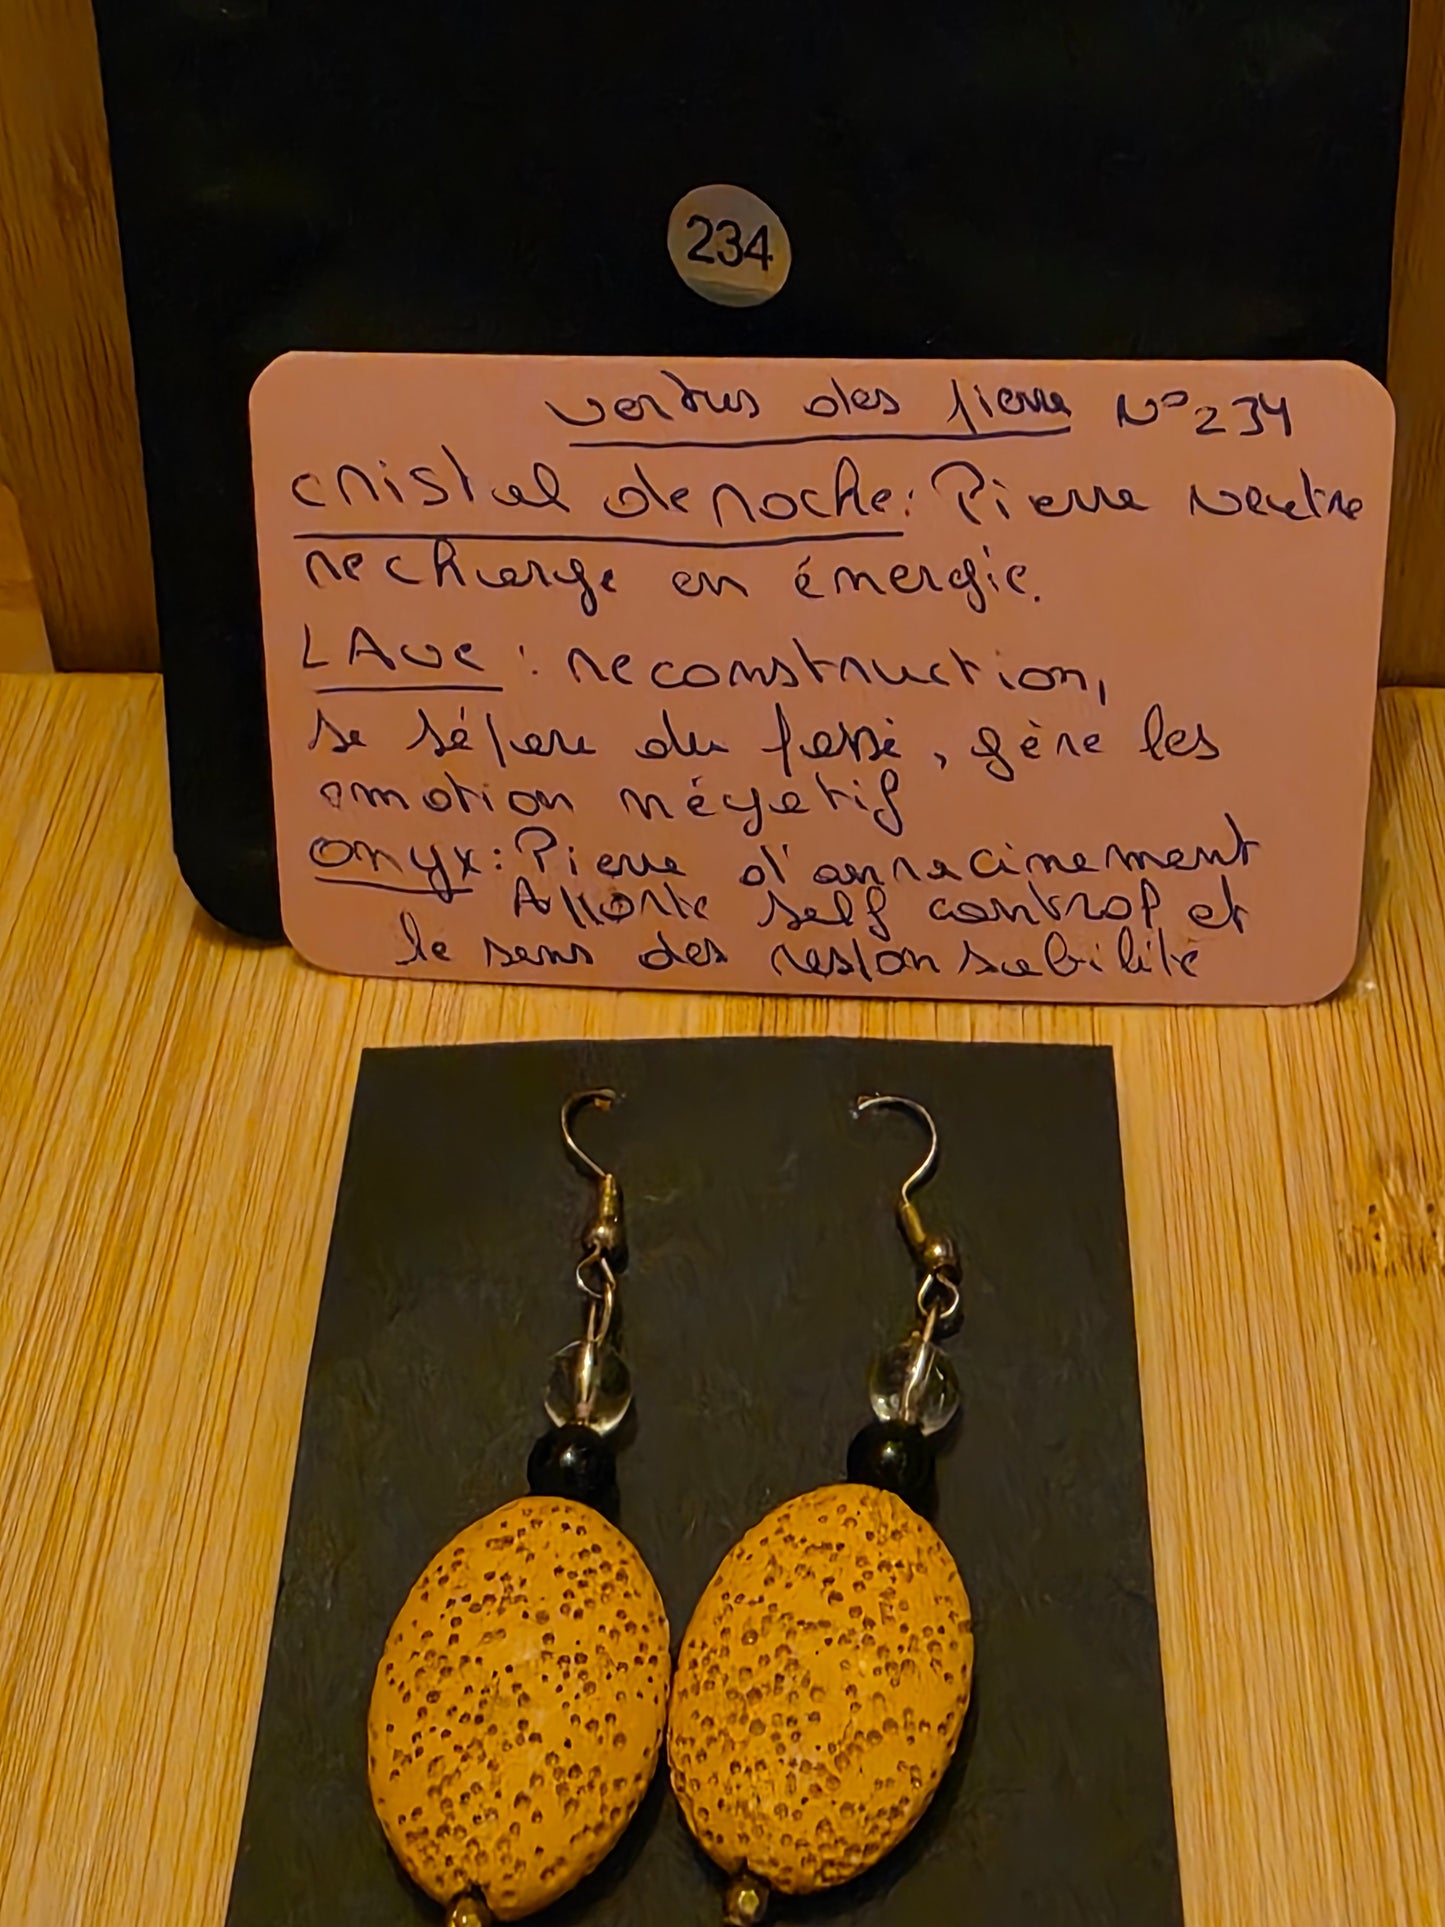 234
vertus des pierre N° 234
cristal de roche : Pierre Neutre
recharge en énergie.
LAve : reconstruction,
se sépare du passé, gère les
emotion négatif
onyx : Pierre d'anracinement
Apporte self control et
le sens des responsabilité